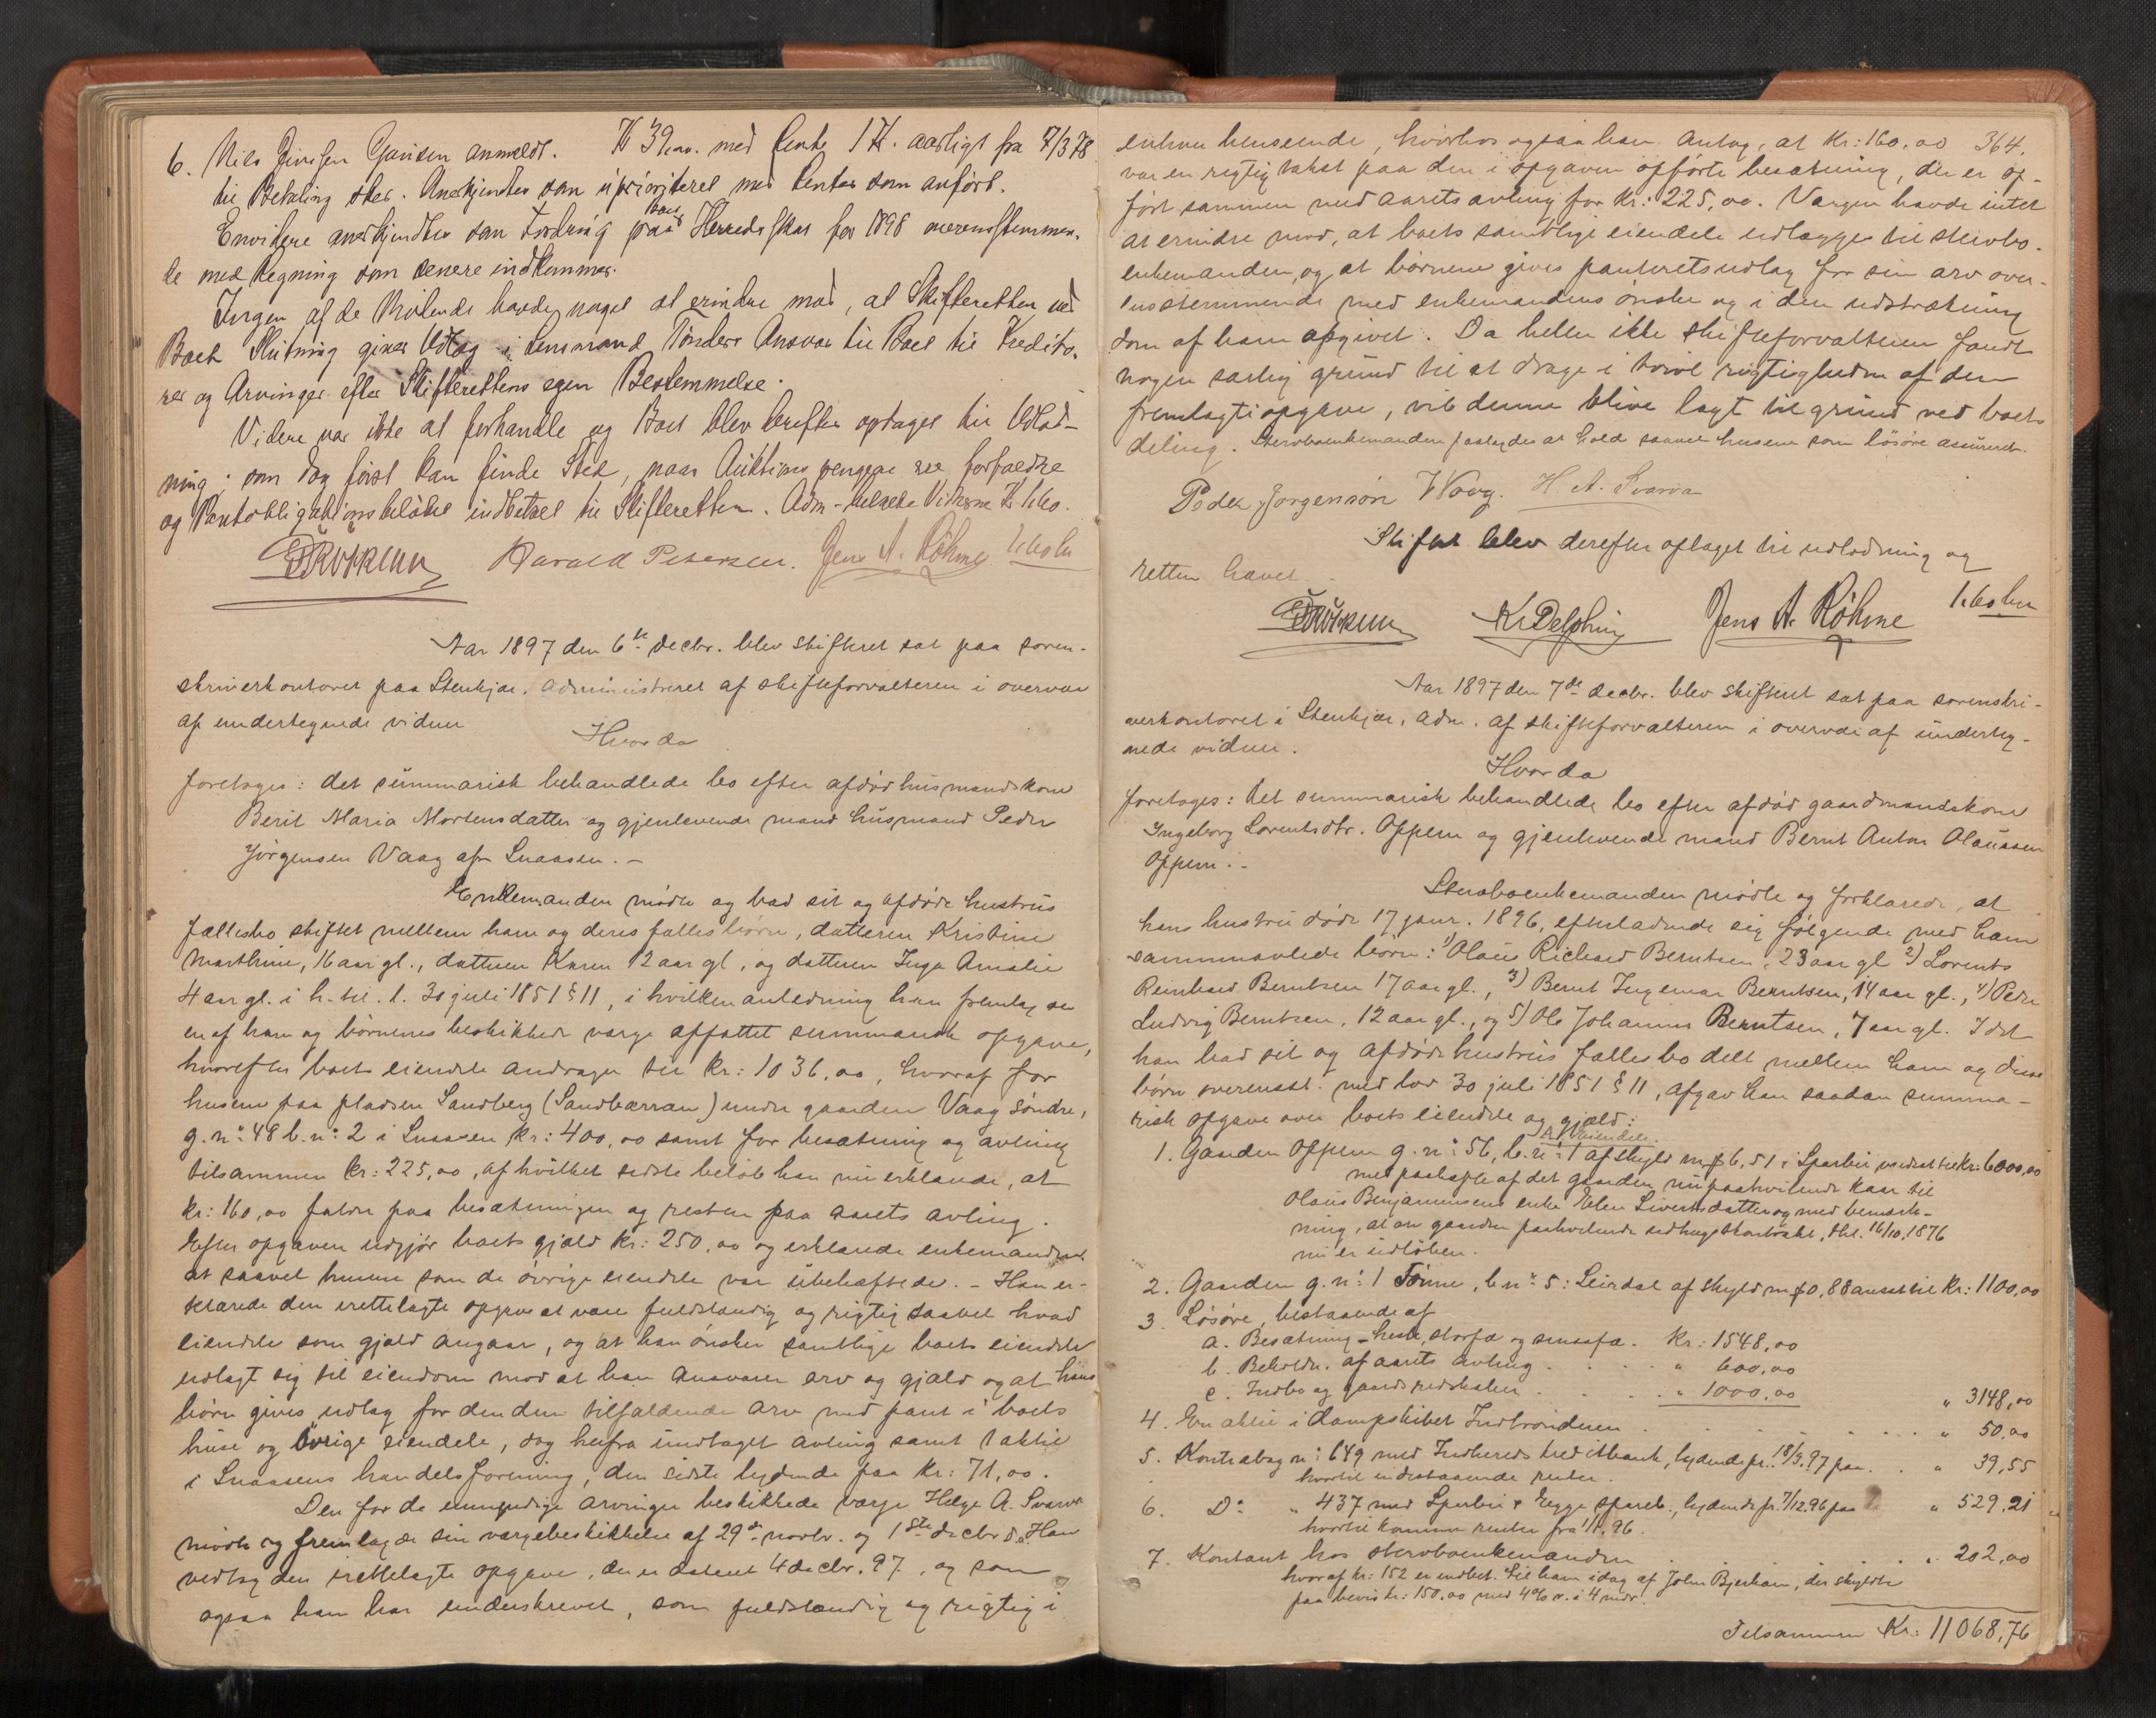 6. Nils anmeldt. Kr 39 med Rente aarligt fra 7/3 78
til Betaling sker. Anerkjendtes som uprioriteret med Renter som anført.
Envidere anerkjendtes som Fordring paa Boet Herredsskat for 1898 overensstemmen-
de med Regning som senere indkommer.
Ingen af de Mødende havde noget at erindre mod, at Skifteretten ved
Boets Slutning giver Udlæg i Lensmand Tønders Ansvar til Boet til Kredito-
rer og Arvinger efter Skifterettens egen Bestemmelse.
Videre var ikke at forhandle og Boet blev derefter optaget til Udlod-
ning; som dog først kan finde Sted, naar Auktionspengene ere forfaldne
og Pantobligationsbeløbet indbetalt til Skifteretten. Adm.
Harald Petersen. Jens A. Röhme
Aar 1897 den 6te decbr. blev skifteret sat paa soren-
skriverkontoret paa Stenkjær, administreret af skifteforvalteren i overvær
af undertegnede vidner
Hvorda
foretoges: det summarisk behandlede bo efter afdød husmandskone
Berit Maria Mortensdatter og gjenlevende mand husmand Peder
Jörgensen Vaag af Snaasen. -
Enkemanden mødte og bad sit og afdøde hustrus
fællesbo skiftet mellem ham og deres fælles børn, datteren Kristine
Marthine, 16 aar gl., datteren Karen 12 aar gl, og datteren Inga Amalie
4 aar gl. i h. til l. 30 juli 1851 § 11, i hvilken anledning han fremlag de
en af ham og børnenes beskikkede værge affattet summarisk opgave,
hvorefter boets eiendele andrager til kr: 1036,00, hvoraf for
husene paa pladsen Sandberg (Sandbærran) under gaarden Vaag søndre,
g.nº: 48 b.nº: 2 i Snaasen kr: 400,00 samt for besætning og avling
tilsammen kr: 225,00, af hvilket sidste beløb han nu erklærede, at
kr: 160,00 falder paa besætningen og resten paa aarets avling.
Efter opgaven udgjør boets gjæld kr: 250,00 og erklærede enkemanden
at saavel husene som de øvrige eiendele var ubehæftede. - Han er-
klærede den irettelagte opgave at være fuldstændig og rigtig saavel hvad
eiendele som gjæld angaar, og at han ønsker samtlige boets eiendele
udlagt sig til eiendom mod at han ansvarer arv og gjæld og at hans
børn gives udlæg for den dem tilfaldende arv med pant i boets
huse og øvrige eiendele, dog herfra undtaget avling samt 1 aktie
i Snaasens handelsforening, den sidste lydende paa kr: 71,00.
Den for de umyndige arvinger beskikkede værge Helge A. Svarva
mødte og fremlagde sin værgebeskikkelse af 29de novbr. og 1ste decbr d.a. Han
vedtog den irettelagte opgave, der er dateret 4 decbr. 97, og som
ogsaa han har underskrevet, som fuldstændig og rigtig i
364.
enhver henseende, hvorhos ogsaa han antog, at kr: 160,00
var en rigtig takst paa den i opgaven opførte besætning, der er op-
ført sammen med aarets avling for kr: 225,00. Værgen havde intet
at erindre mod, at boets samtlige eiendele udlægges til stervbo-
enkemanden, og at børnene gives panteretsudlæg for sin arv over-
ensstemmende med enkemandens ønske og i den udstrækning
som af ham opgivet. Da heller ikke skifteforvalteren fandt
nogen særlig grund til at drage i tvivl rigtigheden af den
fremlagte opgave, vil denne blive lagt til grund ved boets
deling. Stervboenkemanden paalagdes at hold saavel husene som løsøre assureret.
Peder Jørgensøn Waag. H A. Svarva
Skiftet blev derefter optaget til udlodning og
retten hævet.
K Delphin Jens A. Röhme
Aar 1897 den 7de decbr. blev skifteret sat paa sorenskri-
verkontoret i Stenkjær, adm. af skifteforvalteren i overvær af underteg-
nede vidner.
Hvorda
foretoges: Det summarisk behandlede bo efter afdød gaardmandskone
Ingeborg Lorentsdtr. Oppem og gjenlevende mand Bernt Anton Olaussen
Oppem. -
Stervboenkemanden mødte og forklarede, at
hans hustru døde 17 janr. 1896, efterladende sig følgende med ham
sammenavlede børn: 1) Olaus Richard Berntsen, 23 aar gl 2) Lorents
Reinhard Berntsen 17 aar gl., 3) Bernt Ingemar Berntsen, 14 aar gl., 4) Peder
Ludvig Berntsen, 12 aar gl., og 5) Ole Johannes Berntsen, 7 aar gl. Idet
han bad sit og afdøde hustrus fællesbo delt mellem ham og disse
børn overensst. med lov 30 juli 1851 § 11, afgav han saadan summa-
risk opgave over boets eiendele og gjæld:
A. Eiendele.
1. Gaarden Oppem g.nº: 56, b.nº: 1 af skyld m 6,51 i Sparbu vurderet til kr: 6000,00
med paahefte af det gaarden nu paahvilende kaar til
Olaus Benjaminsens enke Elen Sivertsdatter og med bemærk-
ning, at en gaarden paahvilende kontrakt, thl. 16/10.1876
nu er udløben.
2. Gaarden g.nº: 1 Tønne, b.nº: 5: Leirdal af skyld m 0,88 anset til kr: 1100,00
3. Løsøre, bestaaende af
a. Besætning - heste, storfæ og smaafæ. kr: 1548,00
b. Beholdn. af aarets avling . . . " 600,00
c. Indbo og gaardsredskaber . . . " 1000,00
" 3148,00
4. En aktie i dampskibet Indtrønderen . . . " 50,00
5. Kontrabog nº: 649 med Indherreds kreditbank, lydende pr. 18/3.97 paa . . " 39,55
hvortil indestaaende renter.
6. Dº " 437 med Sparbu & Egge spareb., lydende pr. 7/12.96 paa " 529,21
hvortil kommer renter fra 1/1.96.
7. Kontant hos stervboenkemanden . . . " 202,00
hvoraf kr: 152 er indbet. til ham idag af John Bjerkan, der skyldte
paa bevis kr: 150,00 med 4% r. i 4 mdr.
Tilsammen Kr: 11068,76